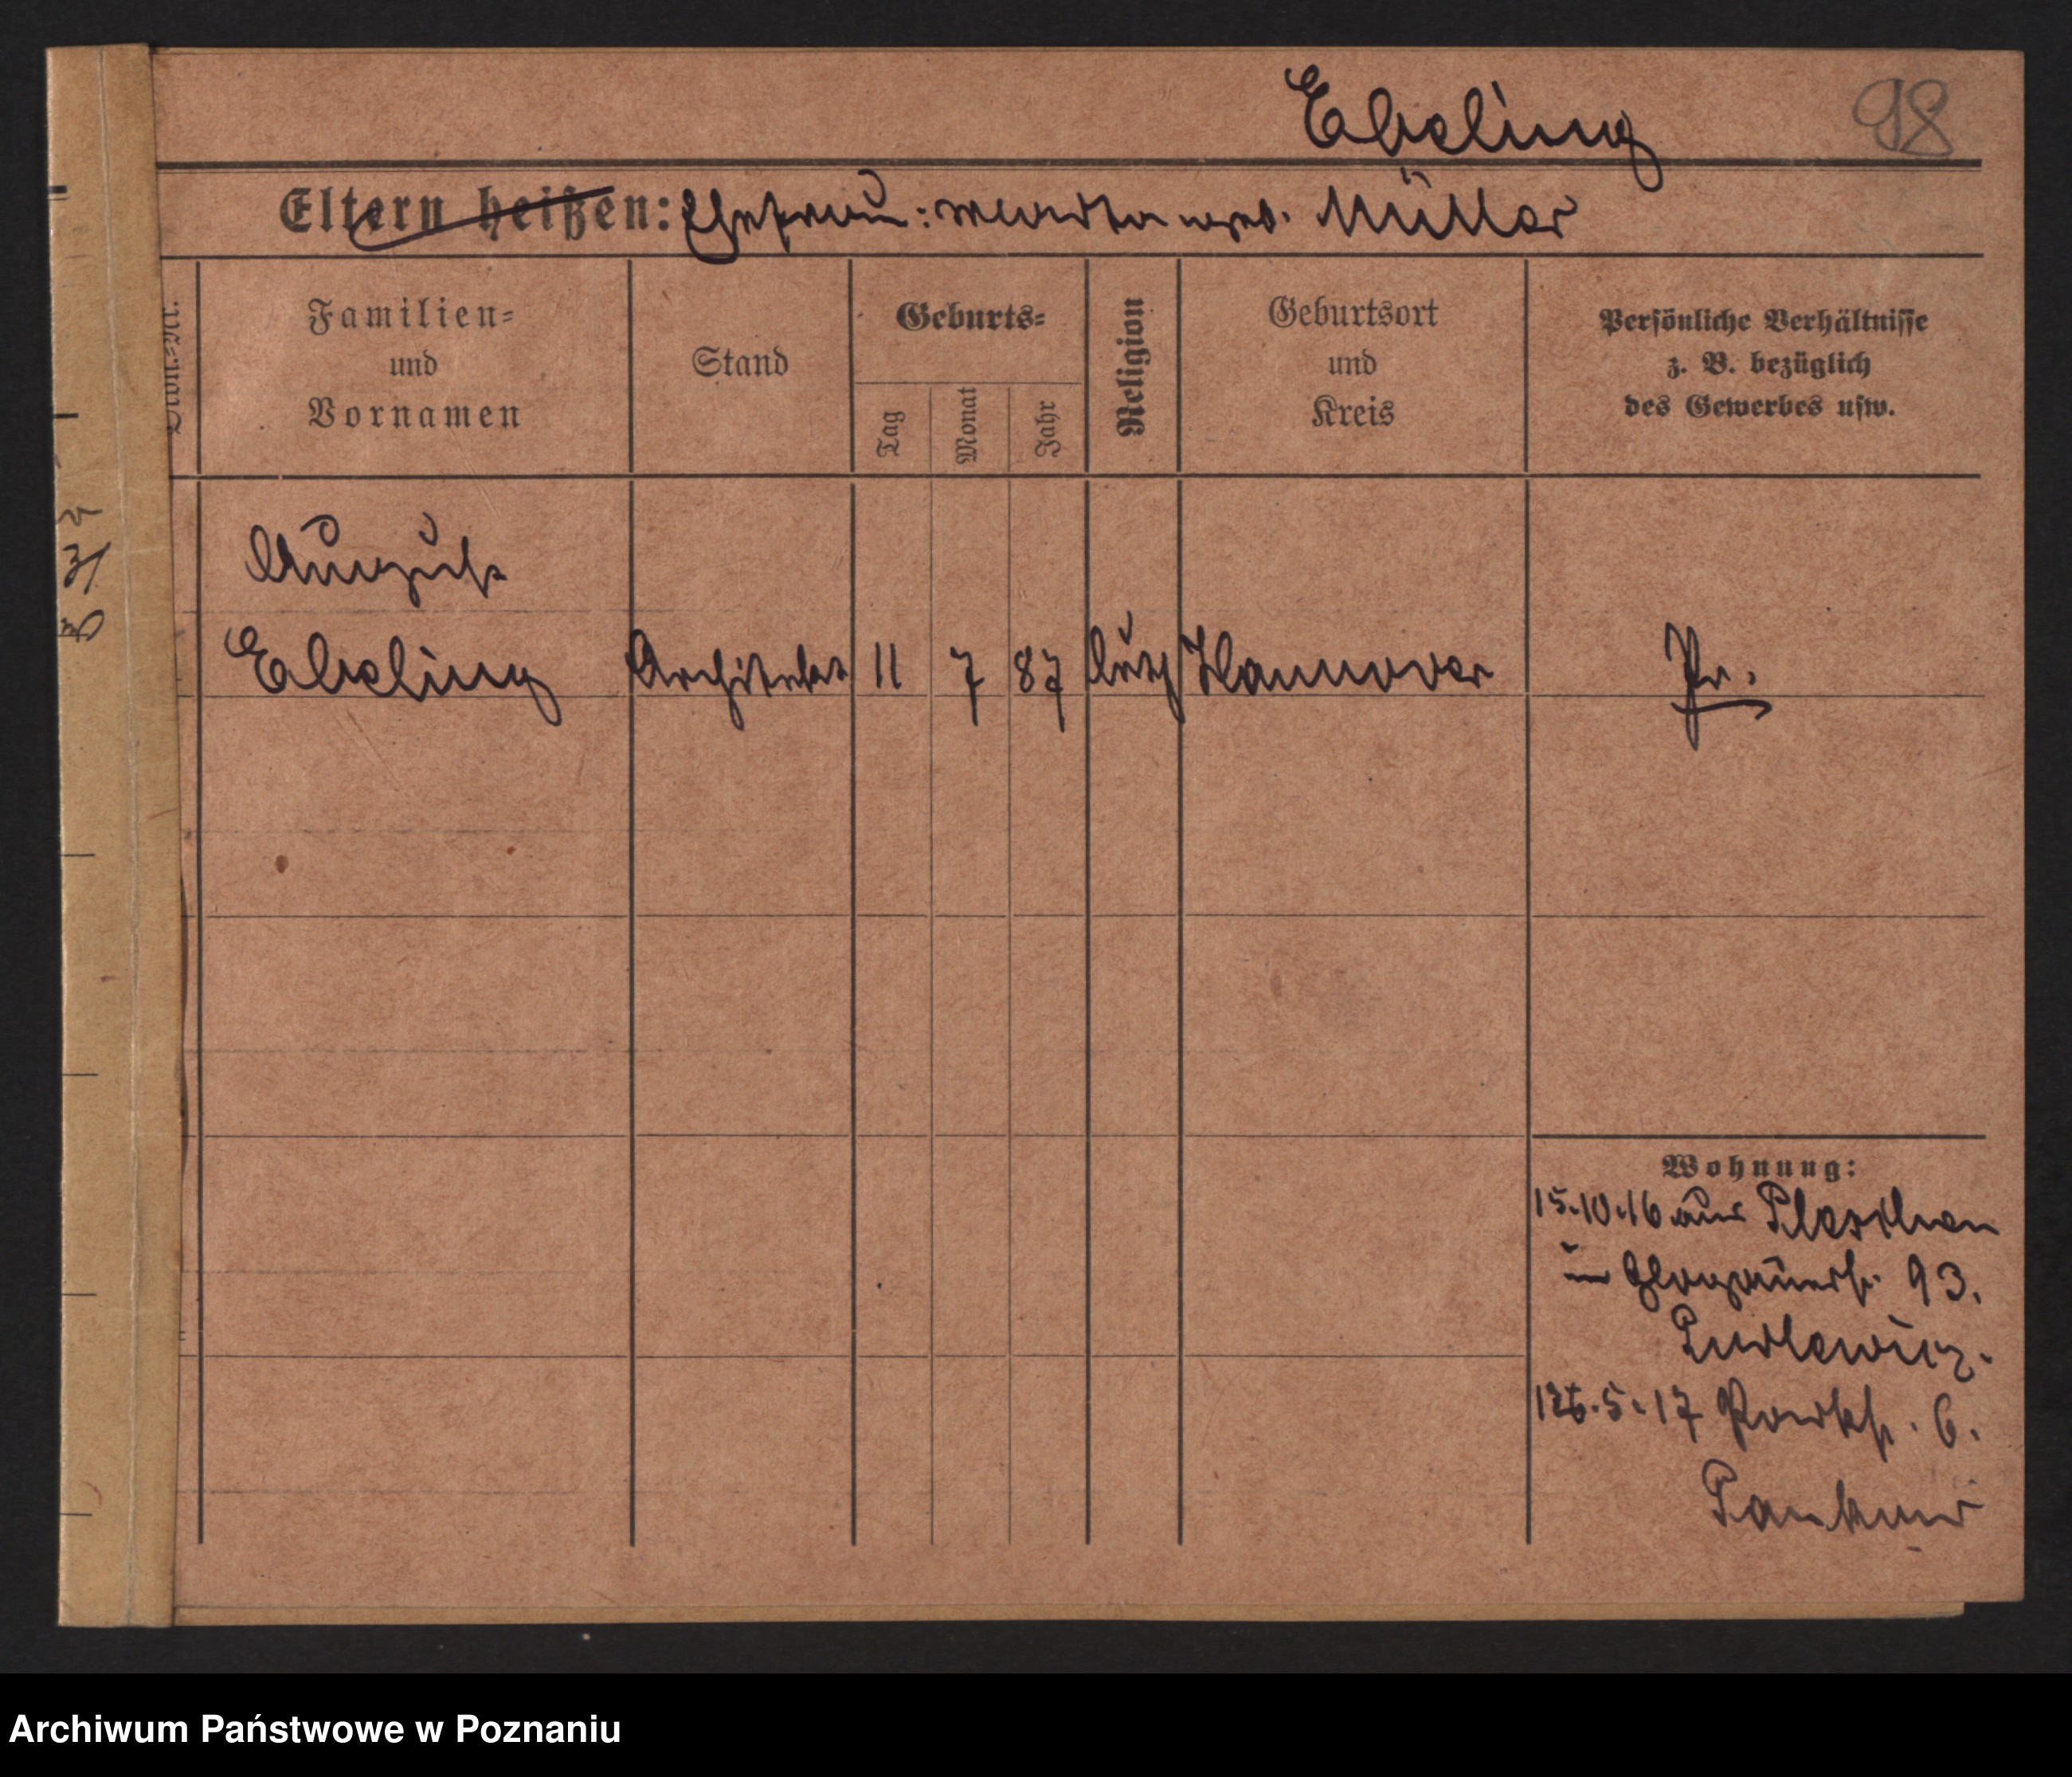 Ebeling 98
Eltern heißen: Ehefrau: Martha geb. Müller
Ordn.=Nr.
Familien=
und
Vornamen
Stand
Geburts=
Tag
Monat
Jahr
Religion
Geburtsort
und
Kreis
Persönliche Verhältnisse
z. B. bezüglich
des Gewerbes usw.
August
Ebeling Architekt 11 7 87 luth Hannover Pr.
Wohnung:
15.10.16 aus Pleschen
in Glogauerstr. 93.
5.17 Parkstr. 6.
Archiwum Państwowe w Poznaniu